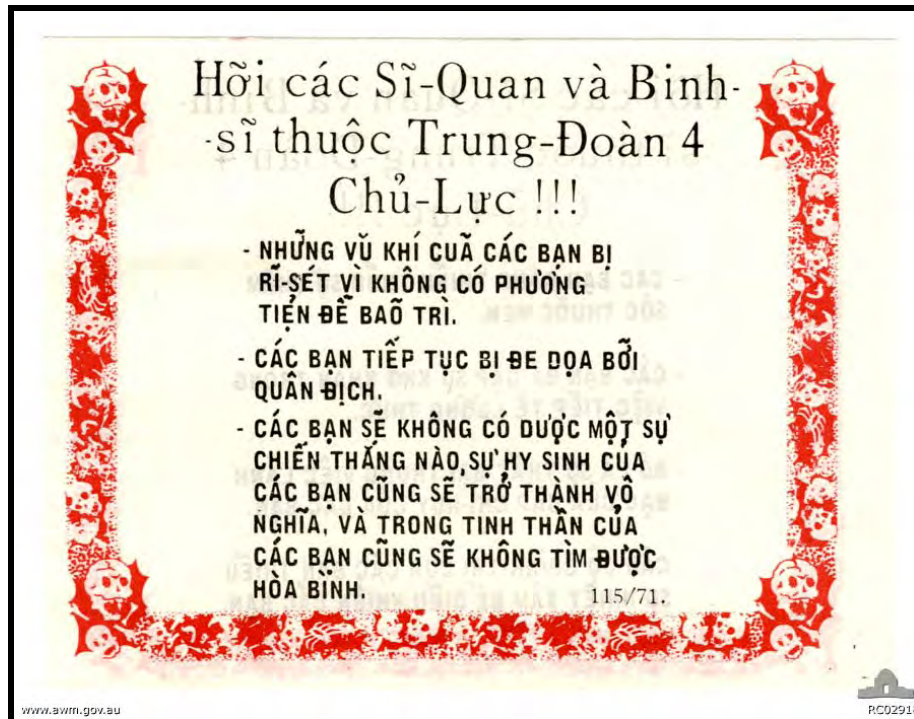 Hỡi các Sĩ-Quan và Binh-
-sĩ thuộc Trung-Đoàn 4
Chủ-Lực !!!
- NHỮNG VŨ KHÍ CUÃ CÁC BẠN BỊ
RĨ-SÉT VÌ KHÔNG CÓ PHƯƠNG
TIỆN ĐỂ BAÕ TRÌ.
- CÁC BẠN TIẾP TỤC BỊ ĐE DỌA BỠI
QUÂN ĐỊCH.
- CÁC BẠN SẼ KHÔNG CÓ DƯỢC MỘT SỰ
CHIẾN THẮNG NÀO, SỰ HY SINH CỦA
CÁC BẠN CŨNG SẼ TRỞ THÀNH VÔ
NGHĨA, VÀ TRONG TINH THẦN CỦA
CÁC BẠN CŨNG SẼ KHÔNG TÌM ĐƯỢC
HÒA BÌNH.
115/71.
www.awm.gov.au